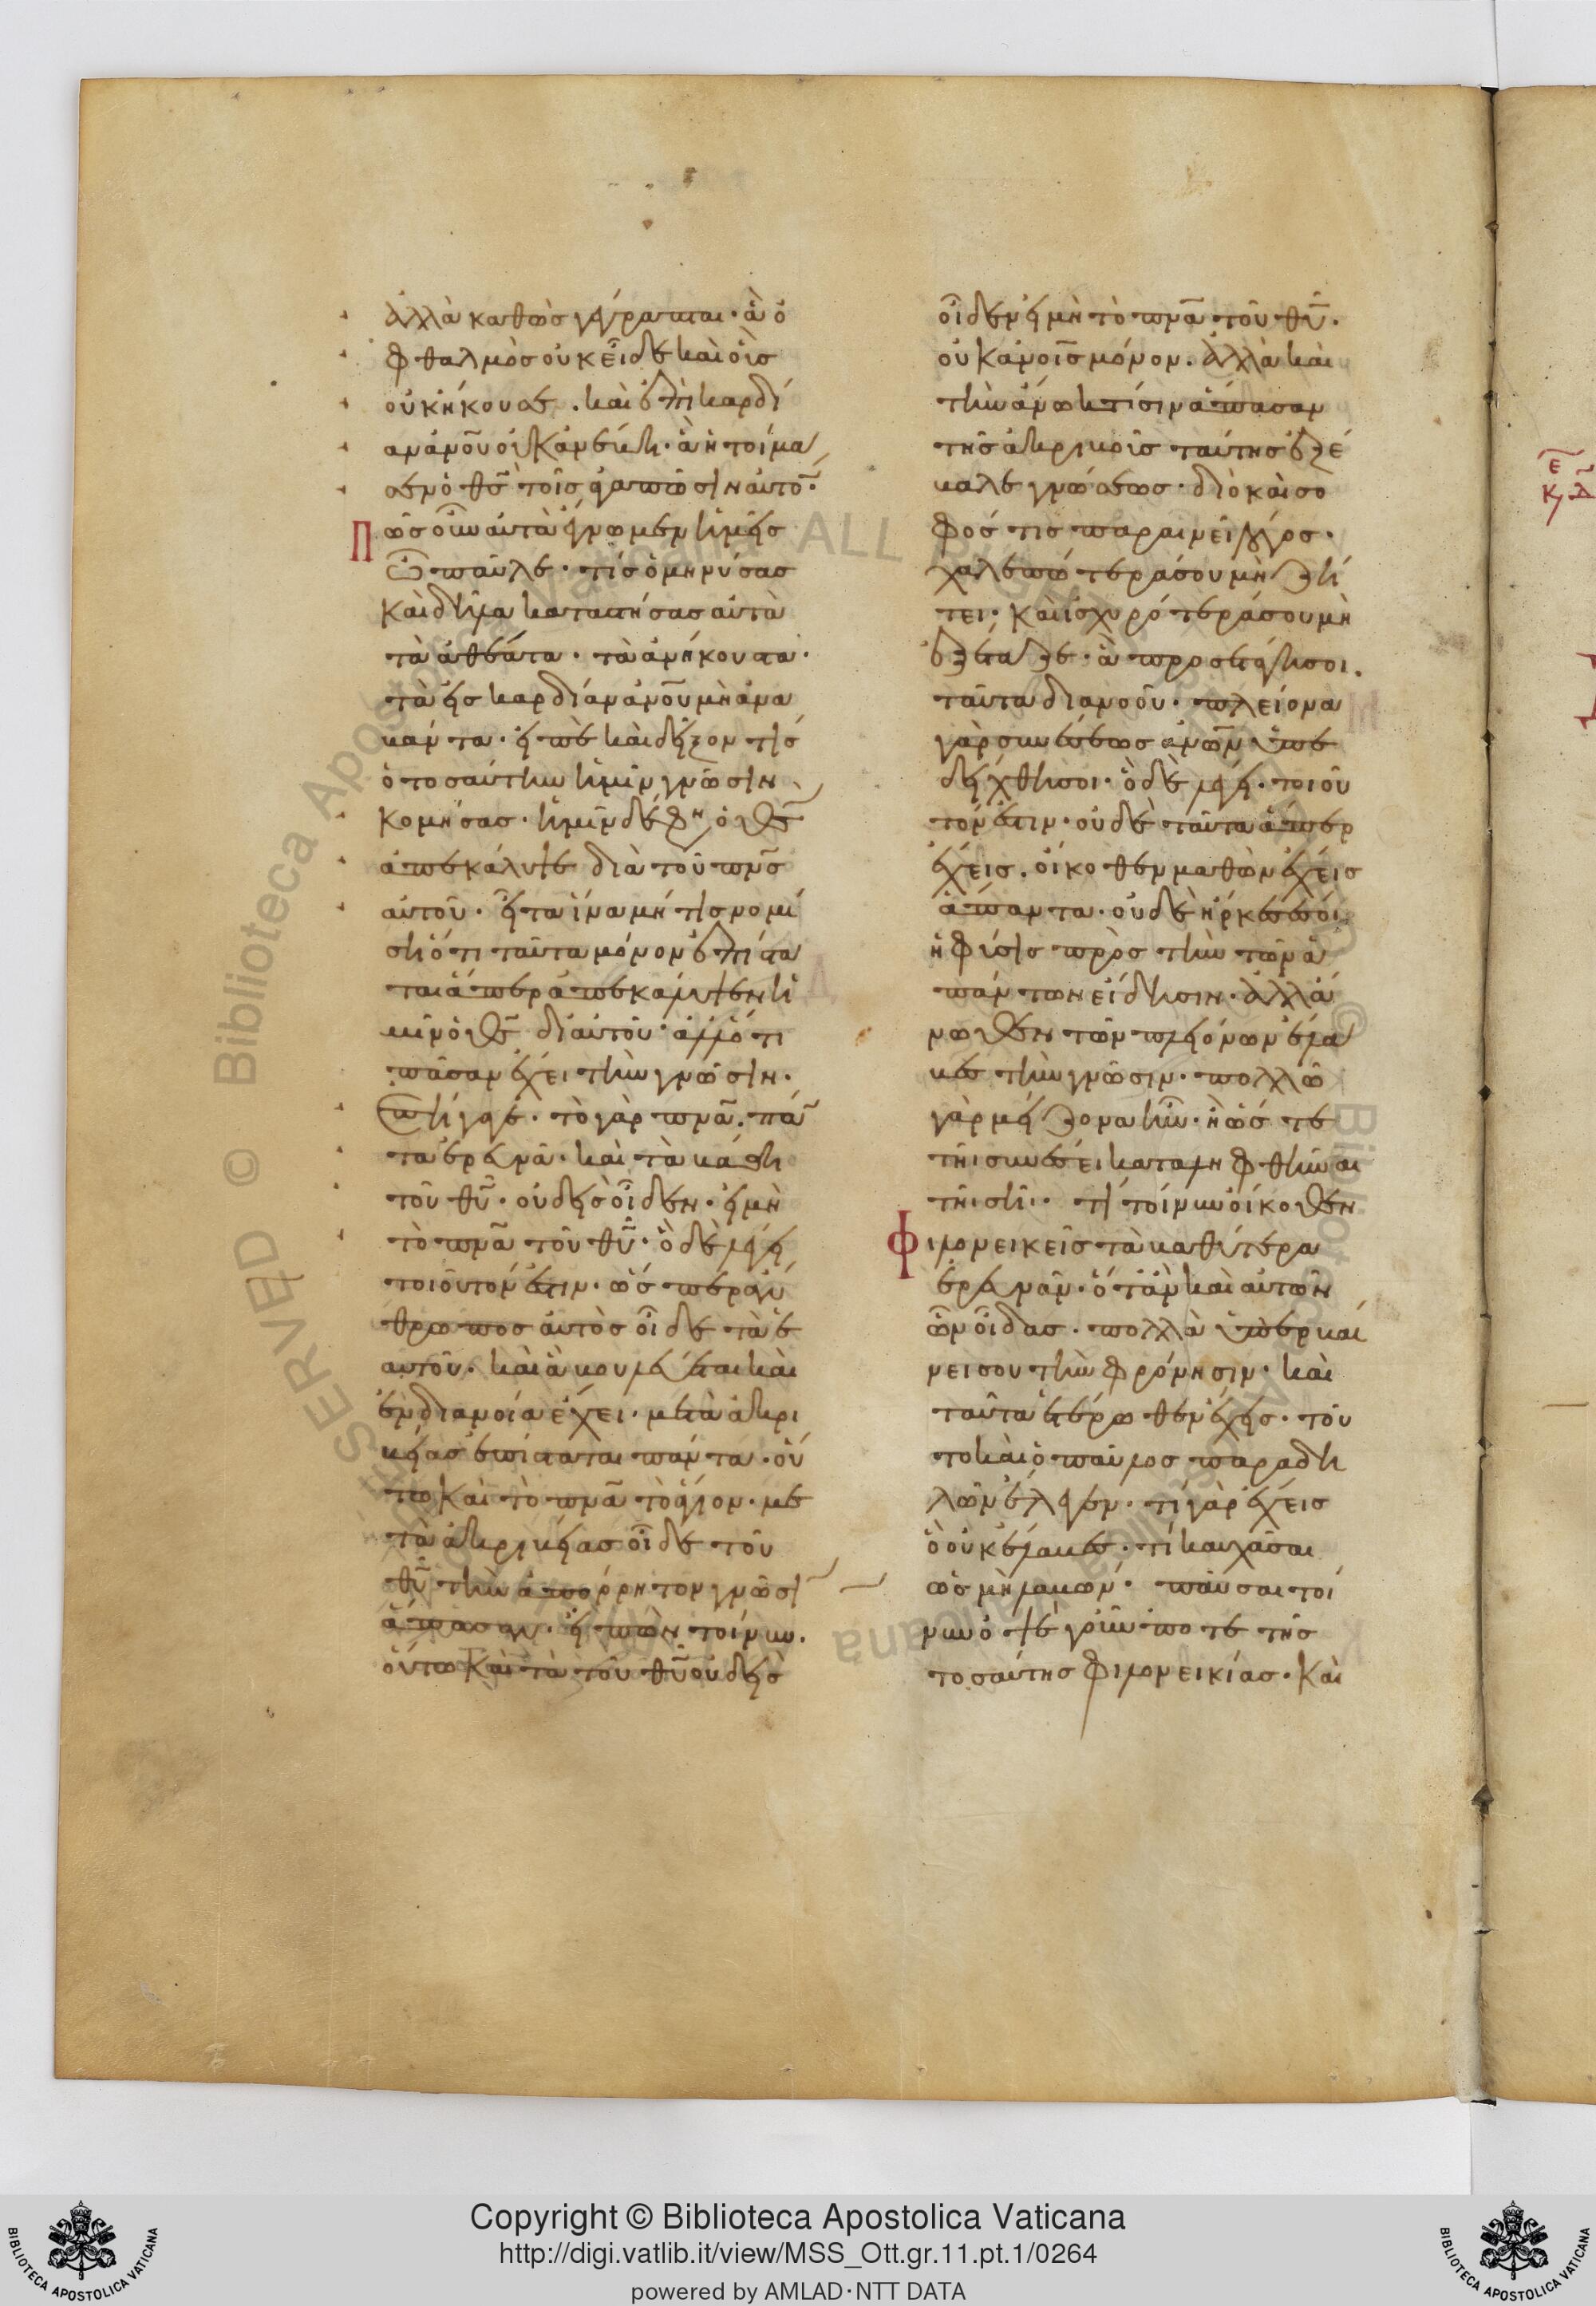 ἀλλὰ καθὼς γέγραπται· ἃ ὀ
φθαλμὸς οὐκ εἶδε καὶ οὖς
οὐκ ἤκουσε. καὶ ἐπὶ καρδί
αν ἀνου οὐκ ἀνέβη· ἃ ἡτοίμα
σεν ὁ θς τοῖς ἀγαπῶσιν αὐτό·
Πῶς οὖν αὐτὰ ἔγνωμεν ἡμεῖς
ὦ παῦλε· τίς ὁ μηνύσας
καὶ δῆλα καταστήσας αὐτὰ
τὰ ἀθέατα· τὰ ἀνήκουστα·
τὰ εἰς καρδίαν ἀνου μὴ ἀνα
βάντα· εἰπὲ καὶ δεῖξον τίς
ὁ τοσαύτην ἡμῖν γνῶσιν
κομίσας· ἡμῖν δέ φη ὁ θς
ἀπεκάλυψε διὰ τοῦ πνς
αὐτοῦ· εἶτα ἵνα μή τις νομί
ση ὅτι ταῦτα μόνον ἐπίστα
ται ἅπερ ἀπεκάλυψεν ἡ
μῖν ὁ θς δι αὐτοῦ· ἀλλ ὅτι
πᾶσαν ἔχει τὴν γνῶσιν·
ἐπήγαγε· τὸ γὰρ πνα πάν
τα ἐρευνᾶ· καὶ τὰ βάθη
τοῦ θυ· οὐδεὶς οἶδεν· εἰ μὴ
τὸ πνα τοῦ θυ· ὃ δὲ λέγει
τοιοῦτόν ἐστιν· ὥσπερ ἄν
θρωπος αὐτὸς οἶδε τὰ ἑ
αυτοῦ· καὶ ἃ βουλεύεται καὶ
ἐν διανοία ἔχει· μετὰ ἀκρι
βείας ἐπίσταται πάντα· οὕ
τω καὶ τὸ πνα τὸ ἅγιον· με
τὰ ἀκριβείας οἶδε τοῦ
θυ τὴν ἀπόρρητον γνῶσι
ἅπασαν· εἰπὼν τοίνυν·
οὕτω καὶ τὰ τοῦ θυ οὐδεὶς
οἶδεν εἰ μὴ τὸ πνα τοῦ θυ·
οὐκ ἀνοις μόνον. ἀλλὰ καὶ
τὴν ἄνω κτίσιν ἅπασαν
τῆς ἀκριβοῖς ταύτης ἐξέ
βαλε γνώσεως· διὸ καὶ σο
φός τις παραινεῖ λέγων·
χαλεπώτερά σου μὴ ζή
τει· καὶ ἰσχυρότερά σου μὴ
ἐξέταζε· ἃ προσετάγη σοι.
ταῦτα διανοοῦ· πλείονα
γὰρ συνέσεως ἀνων ὑπε
δείχθη σοι· ὃ δὲ λέγει· τοιοῦ
τόν ἐστιν· οὐδὲ ταῦτα ἅπερ
ἔχεις. οἴκοθεν μαθὼν ἔχεις
ἅπαντα· οὐδὲ ἤρκεσέ σοι
ἡ φύσις πρὸς τὴν τῶν ἁ
πάντων εἴδησιν· ἀλλ ἄ
νωθεν τῶν πλειόνων ἔλα
βες τὴν γνῶσιν· πολλῶ
γὰρ μείζονα ἦν· ἢ ὥστε
τῆι συνέσει καταληφθῆναι
τῆι σῆι· τί τοίνυν οἴκοθεν
φιλονεικεῖς τὰ βαθύτερα
ἐρευνᾶν· ὅταν καὶ αὐτῶν
ὧν οἶδας· πολλὰ ὑπερβαί
νει σου τὴν φρόνησιν· καὶ
ταῦτα ἑτέρωθεν ἔχεις· τοῦ
το καὶ ὁ παῦλος παραδη
λῶν ἔλεγεν· τί γὰρ ἔχεις
ὃ οὐκ ἔλαβες· τί καυχᾶσαι
ὡς μὴ λαβών· παῦσαι τοί
νυν ὀψέ γοῦν ποτε τῆς
τοσαύτης φιλονεικίας· καὶ
Copyright © Biblioteca Apostolica Vaticana
http://digi.vatlib.it/view/MSS_Ott.gr.11.pt.1/0264
powered by AMLAD·NTT DATA
BIBLIOTECA APOSTOLICA VATICANA
BIBLIOTECA APOSTOLICA VATICANA